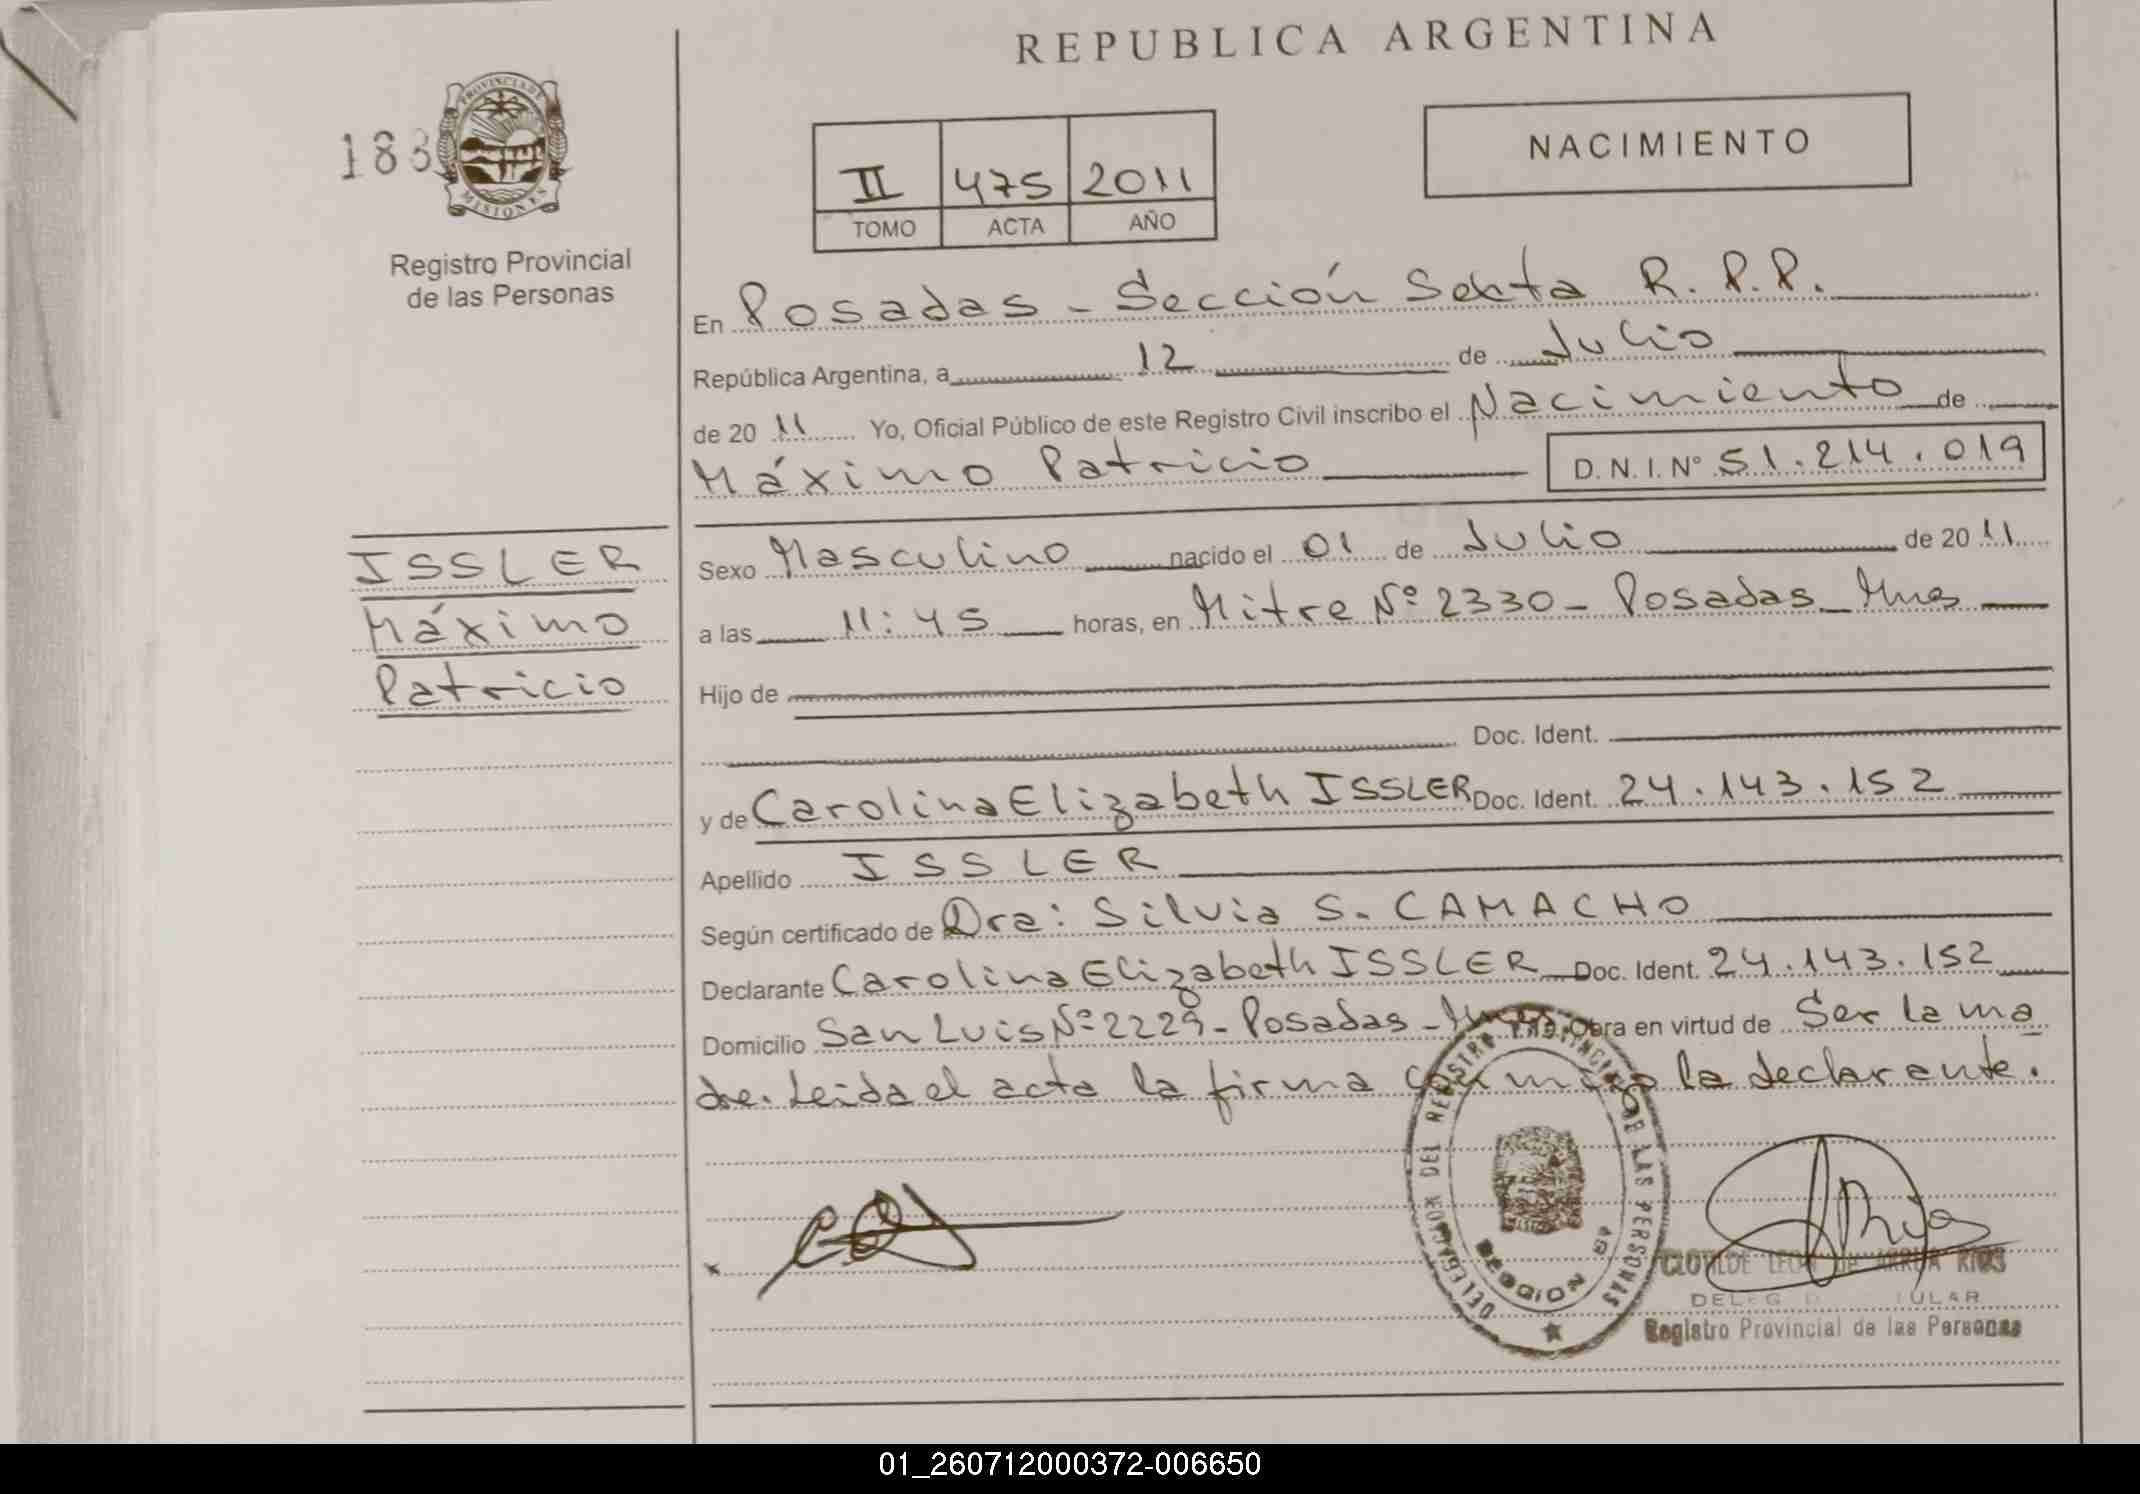 REPUBLICA ARGENTINA
183
PROVINCIA DE
MISIONES
Registro Provincial
de las Personas
II 475 2011
TOMO ACTA AÑO
NACIMIENTO
En Posadas - Sección Sexta R.P.P.
República Argentina, a 12 de Julio
de 20 11 Yo, Oficial Público de este Registro Civil inscribo el Nacimiento de
Máximo Patricio D.N.I. Nº 51.214.019
ISSLER
Máximo
Patricio
Sexo Masculino nacido el 01 de Julio de 20 11
a las 11:45 horas, en Mitre Nº 2330 - Posadas - Mnes
Hijo de
Doc. Ident.
y de Carolina Elizabeth ISSLER Doc. Ident. 24.143.152
Apellido ISSLER
Según certificado de Dra: Silvia S. CAMACHO
Declarante Carolina Elizabeth ISSLER Doc. Ident. 24.143.152
Domicilio San Luis Nº 2229 - Posadas - Obra en virtud de Ser la ma
dre. Leída el acta la firma conmigo la declarante.
DELEGACION DEL REGISTRO PROVINCIAL DE LAS PERSONAS
CLOTILDE LEON de ARRUA RIOS
Registro Provincial de las Personas
01_260712000372-006650